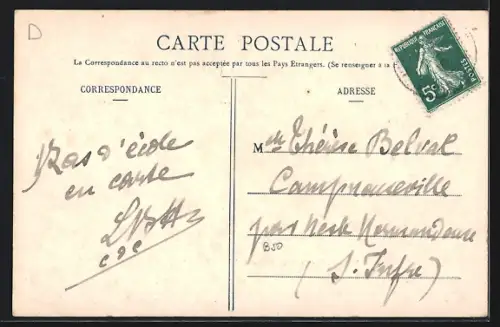 D
CARTE POSTALE
La Correspondance au recto n'est pas acceptée par tous les Pays Étrangers. (Se renseigner à la
CORRESPONDANCE
ADRESSE
REPUBLIQUE FRANÇAISE
POSTES
5c
Pas d'école
en carte
Mlle Thérèse Belval
Campneuseville
par Neuf Normandeuse
(S. Infre)
B50